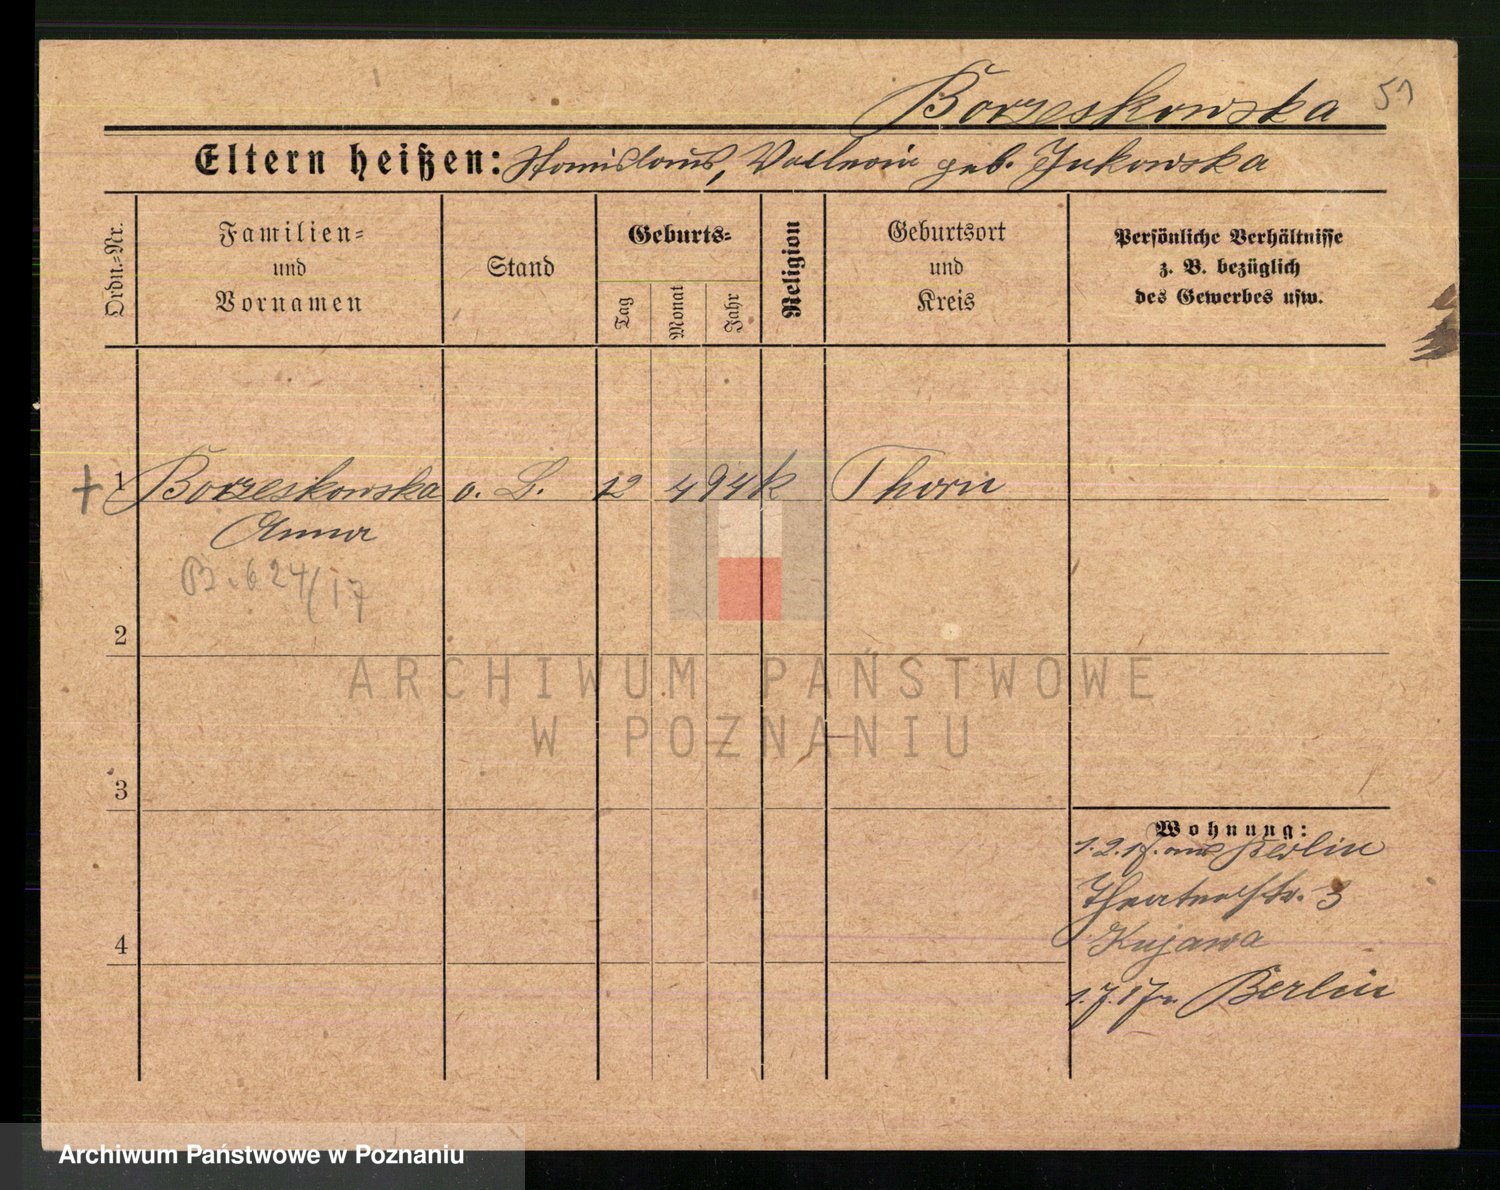 Borzeskowska 51
Eltern heißen: Stanislaus, Valleria geb. Jukowska
Ordn.-Nr.
Familien-
und
Vornamen
Stand
Geburts-
Tag
Monat
Jahr
Religion
Geburtsort
und
Kreis
Persönliche Verhältnisse
z. B. bezüglich
des Gewerbes usw.
+ 1 Borzeskowska o. B. 12 4 94 K Thorn
Anna
B. 624/17
2
ARCHIWUM PAŃSTWOWE
W POZNANIU
3
4
Wohnung:
1.2.17. aus Berlin
Theaterstr. 3
Kujawa
1.7.17 n Berlin
Archiwum Państwowe w Poznaniu